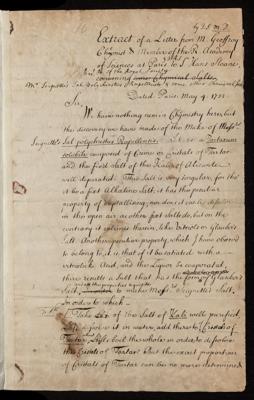 Extract of a Letter from M. Geoffroy
Chymist & Member of the R. Academy
of Sciences at Paris to Sr. Hans Sloane
of the Royal Society
concerning
Mr. Seignette's Sal Polychrestus Rupellensis & some other Chemical
Dated Paris May 4. 1732.
Sir,
We have nothing new in Chymistry here, but
the discovery we have made of the Make of Monsr.
Seignette's Sal polychrestus Rupellensis. It is a Tartarum
solubile composed of Cream or Cristals of Tartar
and the fixt Salt of the Kali of Alicante
well depurated. This Salt is very singular, for tho'
it be a fixt Alkaline Salt, it has the peculiar
property of crystallizing, nor does it easily dissolve
in the open air as other fixt Salts do, but on the
contrary it calcines therein, like Vitriols or Glauber's
Salt. Another peculiar property, which I have observ'd
to belong to it is that if it be satiated with a
vitriolic Acid, and the Liquor be evaporated,
there results a Salt that has the
all the properties of Glauber's
Salt, to make Monsr. Seignette's Salt.
In order to which
Take of the Salt of Kali well purified,
dissolve it in water, add thereto Cristals of
Tartar, boil the whole in order to dissolve
the Cristals of Tartar. But the exact proportion
of Cristals of Tartar can be no more determined